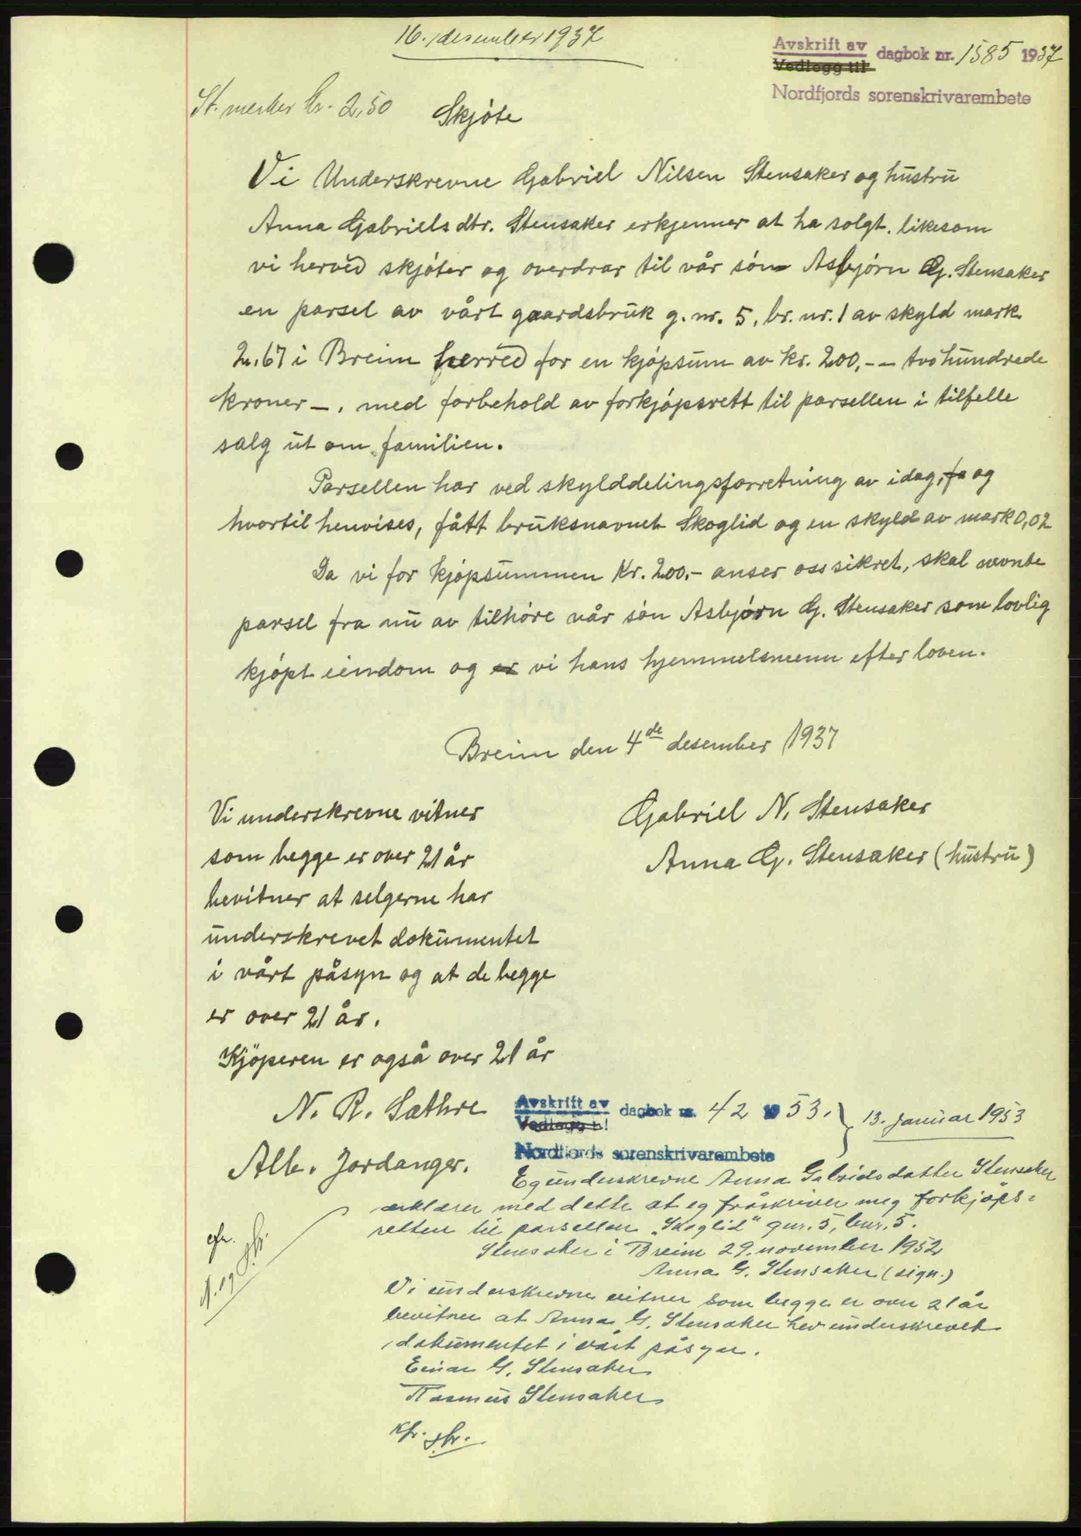 16. desember 1937
Avskrift av
Vedlegg til dagbok nr. 1585 1937
Nordfjords sorenskrivarembete
St. merker kr. 2,50 Skjøte
Vi Underskrevne Gabriel Nilsen Stensaker og hustru
Anna Gabrielsdtr. Stensaker erkjenner at ha solgt, likesom
vi herved skjøter og overdrar til vår søn Asbjørn G. Stensaker
en parsel av vårt gaardsbruk g. nr. 5, br. nr. 1 av skyld mark
2.67 i Breim herred for en kjøpsum av kr. 200,-- tvohundrede
kroner -, med forbehold av forkjøpsrett til parsellen i tilfelle
salg ut om familien.
Parsellen har ved skylddelingsforretning av idag, fa og
hvortil henvises, fått bruksnavnet Skoglid og en skyld av mark 0,02
Da vi for kjøpsummen Kr. 200,- anser oss sikret, skal nevnte
parsel fra nu av tilhøre vår søn Asbjørn G. Stensaker som lovlig
kjøpt eiendom og er vi hans hjemmelsmenn efter loven.
Breim den 4de desember 1937
Gabriel N. Stensaker
Anna G. Stensaker (hustru)
Vi underskrevne vitner
som begge er over 21 år
bevitner at selgerne har
underskrevet dokumentet
i vårt påsyn og at de begge
er over 21 år.
Kjøperen er også over 21 år
N. R. Sæthre
Alb. Jordanger.
Avskrift av
Vedlegg til dagbok nr. 42 1953. 13. januar 1953
Nordfjords sorenskrivarembete
Eg underskrevne Anna Gabrielsdatter Stensaker
erklærer med dette at eg fråskriver meg forkjøps=
retten til parsellen "Skoglid" gnr. 5, bnr. 5.
Stensaker i Breim 29. november 1952
Anna G. Stensaker (sign.)
Vi underskrevne vitner som begge er over 21 år
bevitner at Anna G. Stensaker hev underskrevet
dokumentet i vårt påsyn.
Einar G. Stensaker
Rasmus Stensaker